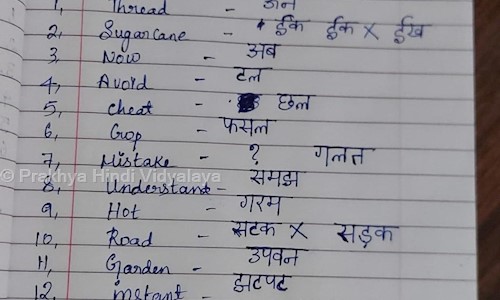 1, Thread -
2, Sugarcane - ईक ईक X ईख
3, Now - अब
4, Avoid - टल
5, Cheat - छल
6, Crop - फसल
7, Mistake - ? गलत
© Prakhya Hindi Vidyalaya
8, Understand - समझ
9, Hot - गरम
10, Road - सटक X सड़क
11, Garden - उपवन
12, instant - झटपट